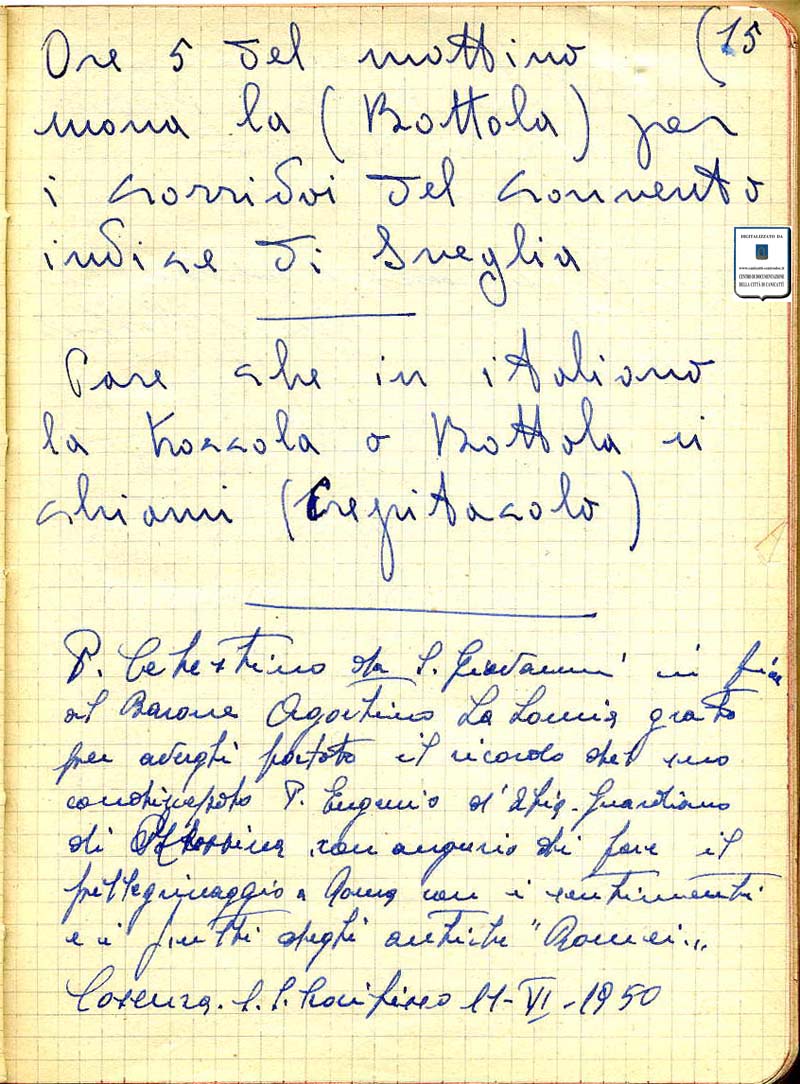 (15
Ore 5 del mattino
suona la (Bottola) per
i corridoi del convento
indice di sveglia
DIGITALIZZATO DA
CENTRO DI DOCUMENTAZIONE
DELLA CITTÀ DI CANICATTÌ
Pare che in italiano
la troccola o Bottola si
chiami (Crepitacolo)
P. Celestino da S. Giovanni in
al Barone Agostino La Lomia grato
per avergli portato il ricordo del suo
condiscepolo P. Eugenio Guardiano
di con augurio di fare il
pellegrinaggio a Roma con i sentimenti
e i frutti degli antichi "Romei".,
Cosenza. Crocifisso 11-VI-1950